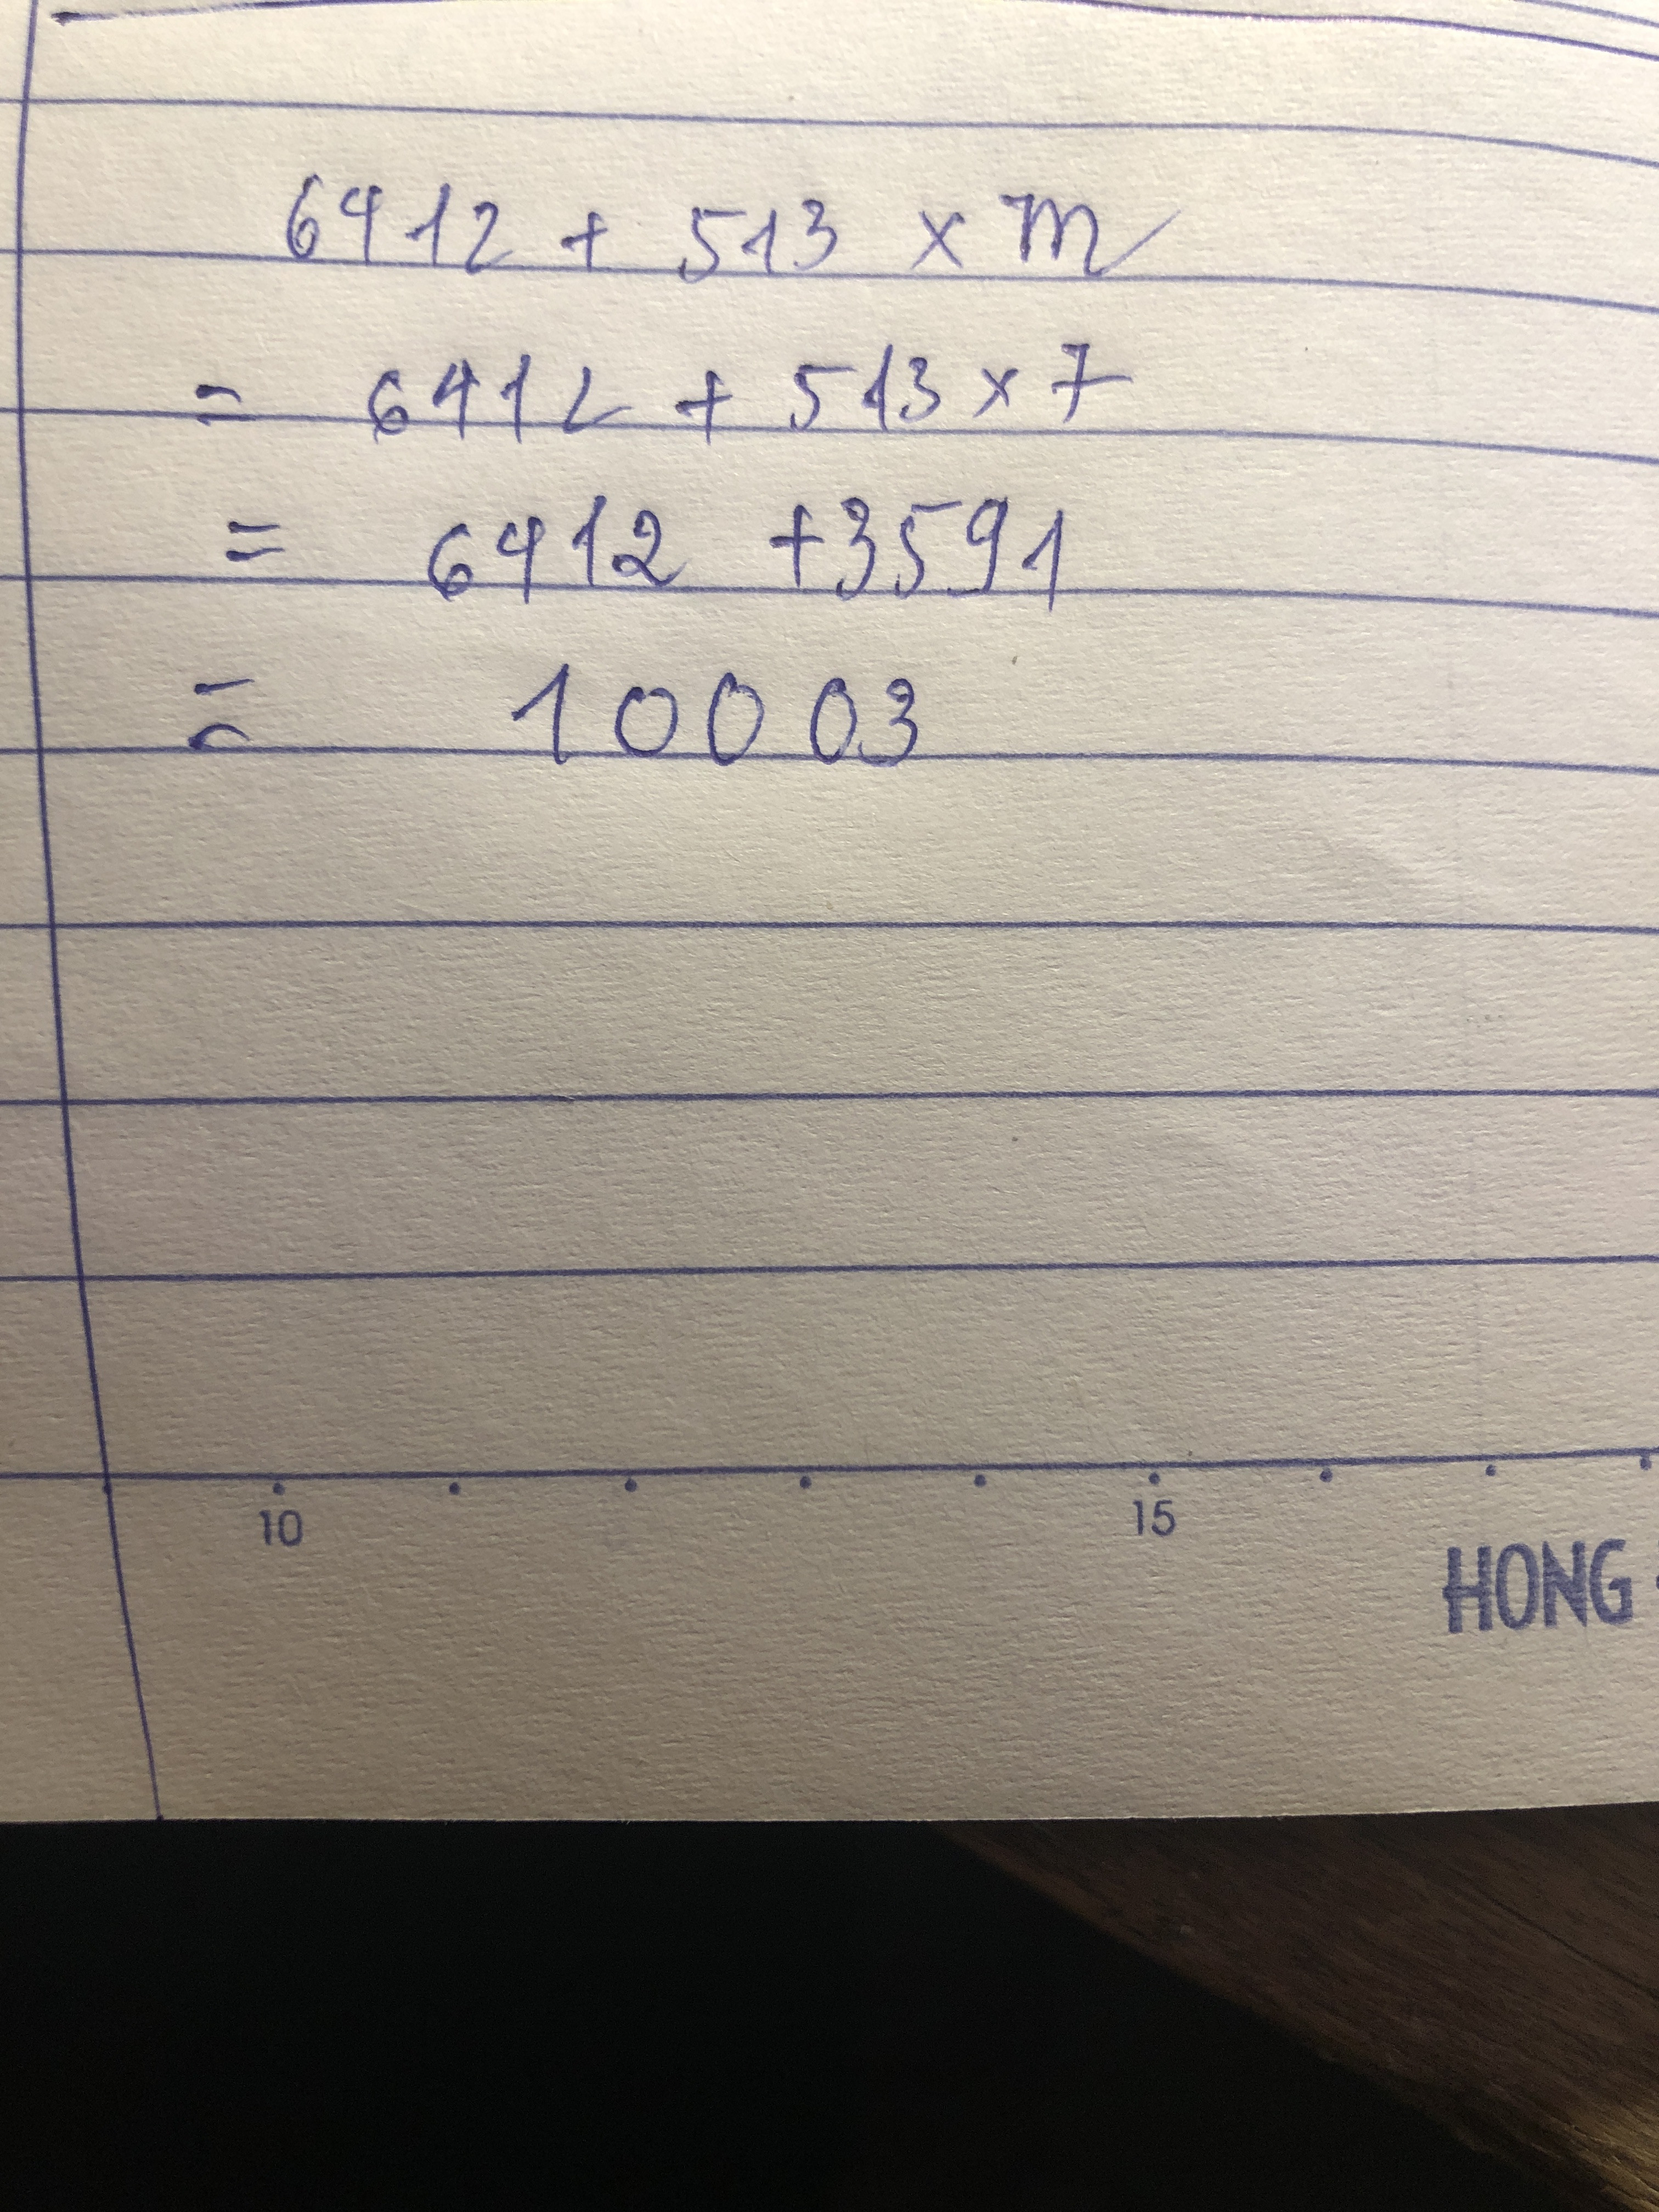 6412 + 513 x m
= 6412 + 513 x 7
= 6412 + 3591
= 10003
10 15
HONG